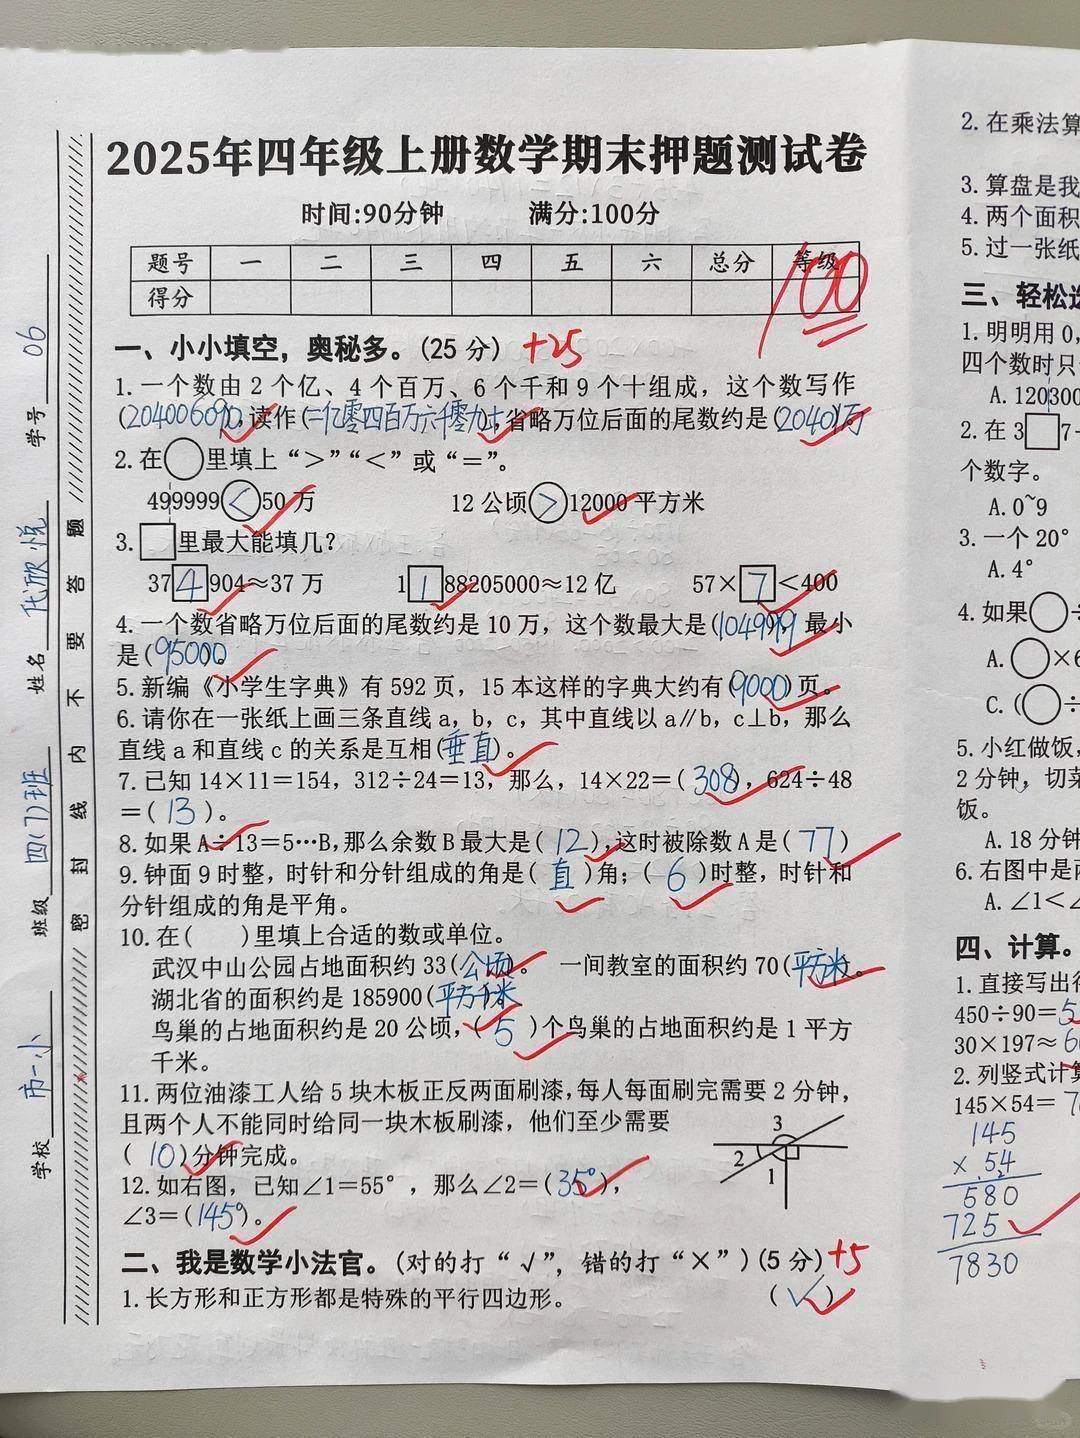 2025年四年级上册数学期末押题测试卷
时间:90分钟 满分:100分
题号 一 二 三 四 五 六 总分 等级
得分
100
一、小小填空，奥秘多。(25分) +25
1.一个数由2个亿、4个百万、6个千和9个十组成，这个数写作
(204006090),读作(二亿零四百万六千零九十),省略万位后面的尾数约是(20401万
2.在○里填上“>”“<”或“=”。
499999<50万 12公顷>12000平方米
3.□里最大能填几？
37 4 904≈37万 1 1 88205000≈12亿 57×7<400
4.一个数省略万位后面的尾数约是10万，这个数最大是(104999)，最小
是(95000)。
5.新编《小学生字典》有592页，15本这样的字典大约有(9000)页。
6.请你在一张纸上画三条直线a，b，c，其中直线以a∥b，c⊥b，那么
直线a和直线c的关系是互相(垂直)。
7.已知14×11=154，312÷24=13，那么，14×22=(308)，624÷48
=(13)。
8.如果A÷13=5…B,那么余数B最大是(12),这时被除数A是(77)
9.钟面9时整，时针和分针组成的角是(直)角；(6)时整，时针和
分针组成的角是平角。
10.在( )里填上合适的数或单位。
武汉中山公园占地面积约33(公顷)。 一间教室的面积约70(平方米)。
湖北省的面积约是185900(平方千米)。
鸟巢的占地面积约是20公顷，(5)个鸟巢的占地面积约是1平方
千米。
11.两位油漆工人给5块木板正反两面刷漆，每人每面刷完需要2分钟，
且两个人不能同时给同一块木板刷漆，他们至少需要
(10)分钟完成。
12.如右图，已知∠1=55°，那么∠2=(35°)，
∠3=(145°)。
3
2
1
二、我是数学小法官。(对的打“√”，错的打“×”)(5分) +5
1.长方形和正方形都是特殊的平行四边形。 (√)
学校 市一小 班级 四(7)班 姓名 代欣悦 学号 06
密封线内不要答题
2.在乘法算
3.算盘是我
4.两个面积
5.过一张纸
三、轻松选
1.明明用0,
四个数时只
A.120300
2.在3□7
个数字。
A.0~9
3.一个20°
A.4°
4.如果○÷
A.○×6
C.(○÷
5.小红做饭,
2分钟，切菜
饭。
A.18分钟
6.右图中是两
A.∠1<∠
四、计算。
1.直接写出得
450÷90=5
30×197≈6
2.列竖式计算
145×54=7
145
×54
580
725
7830